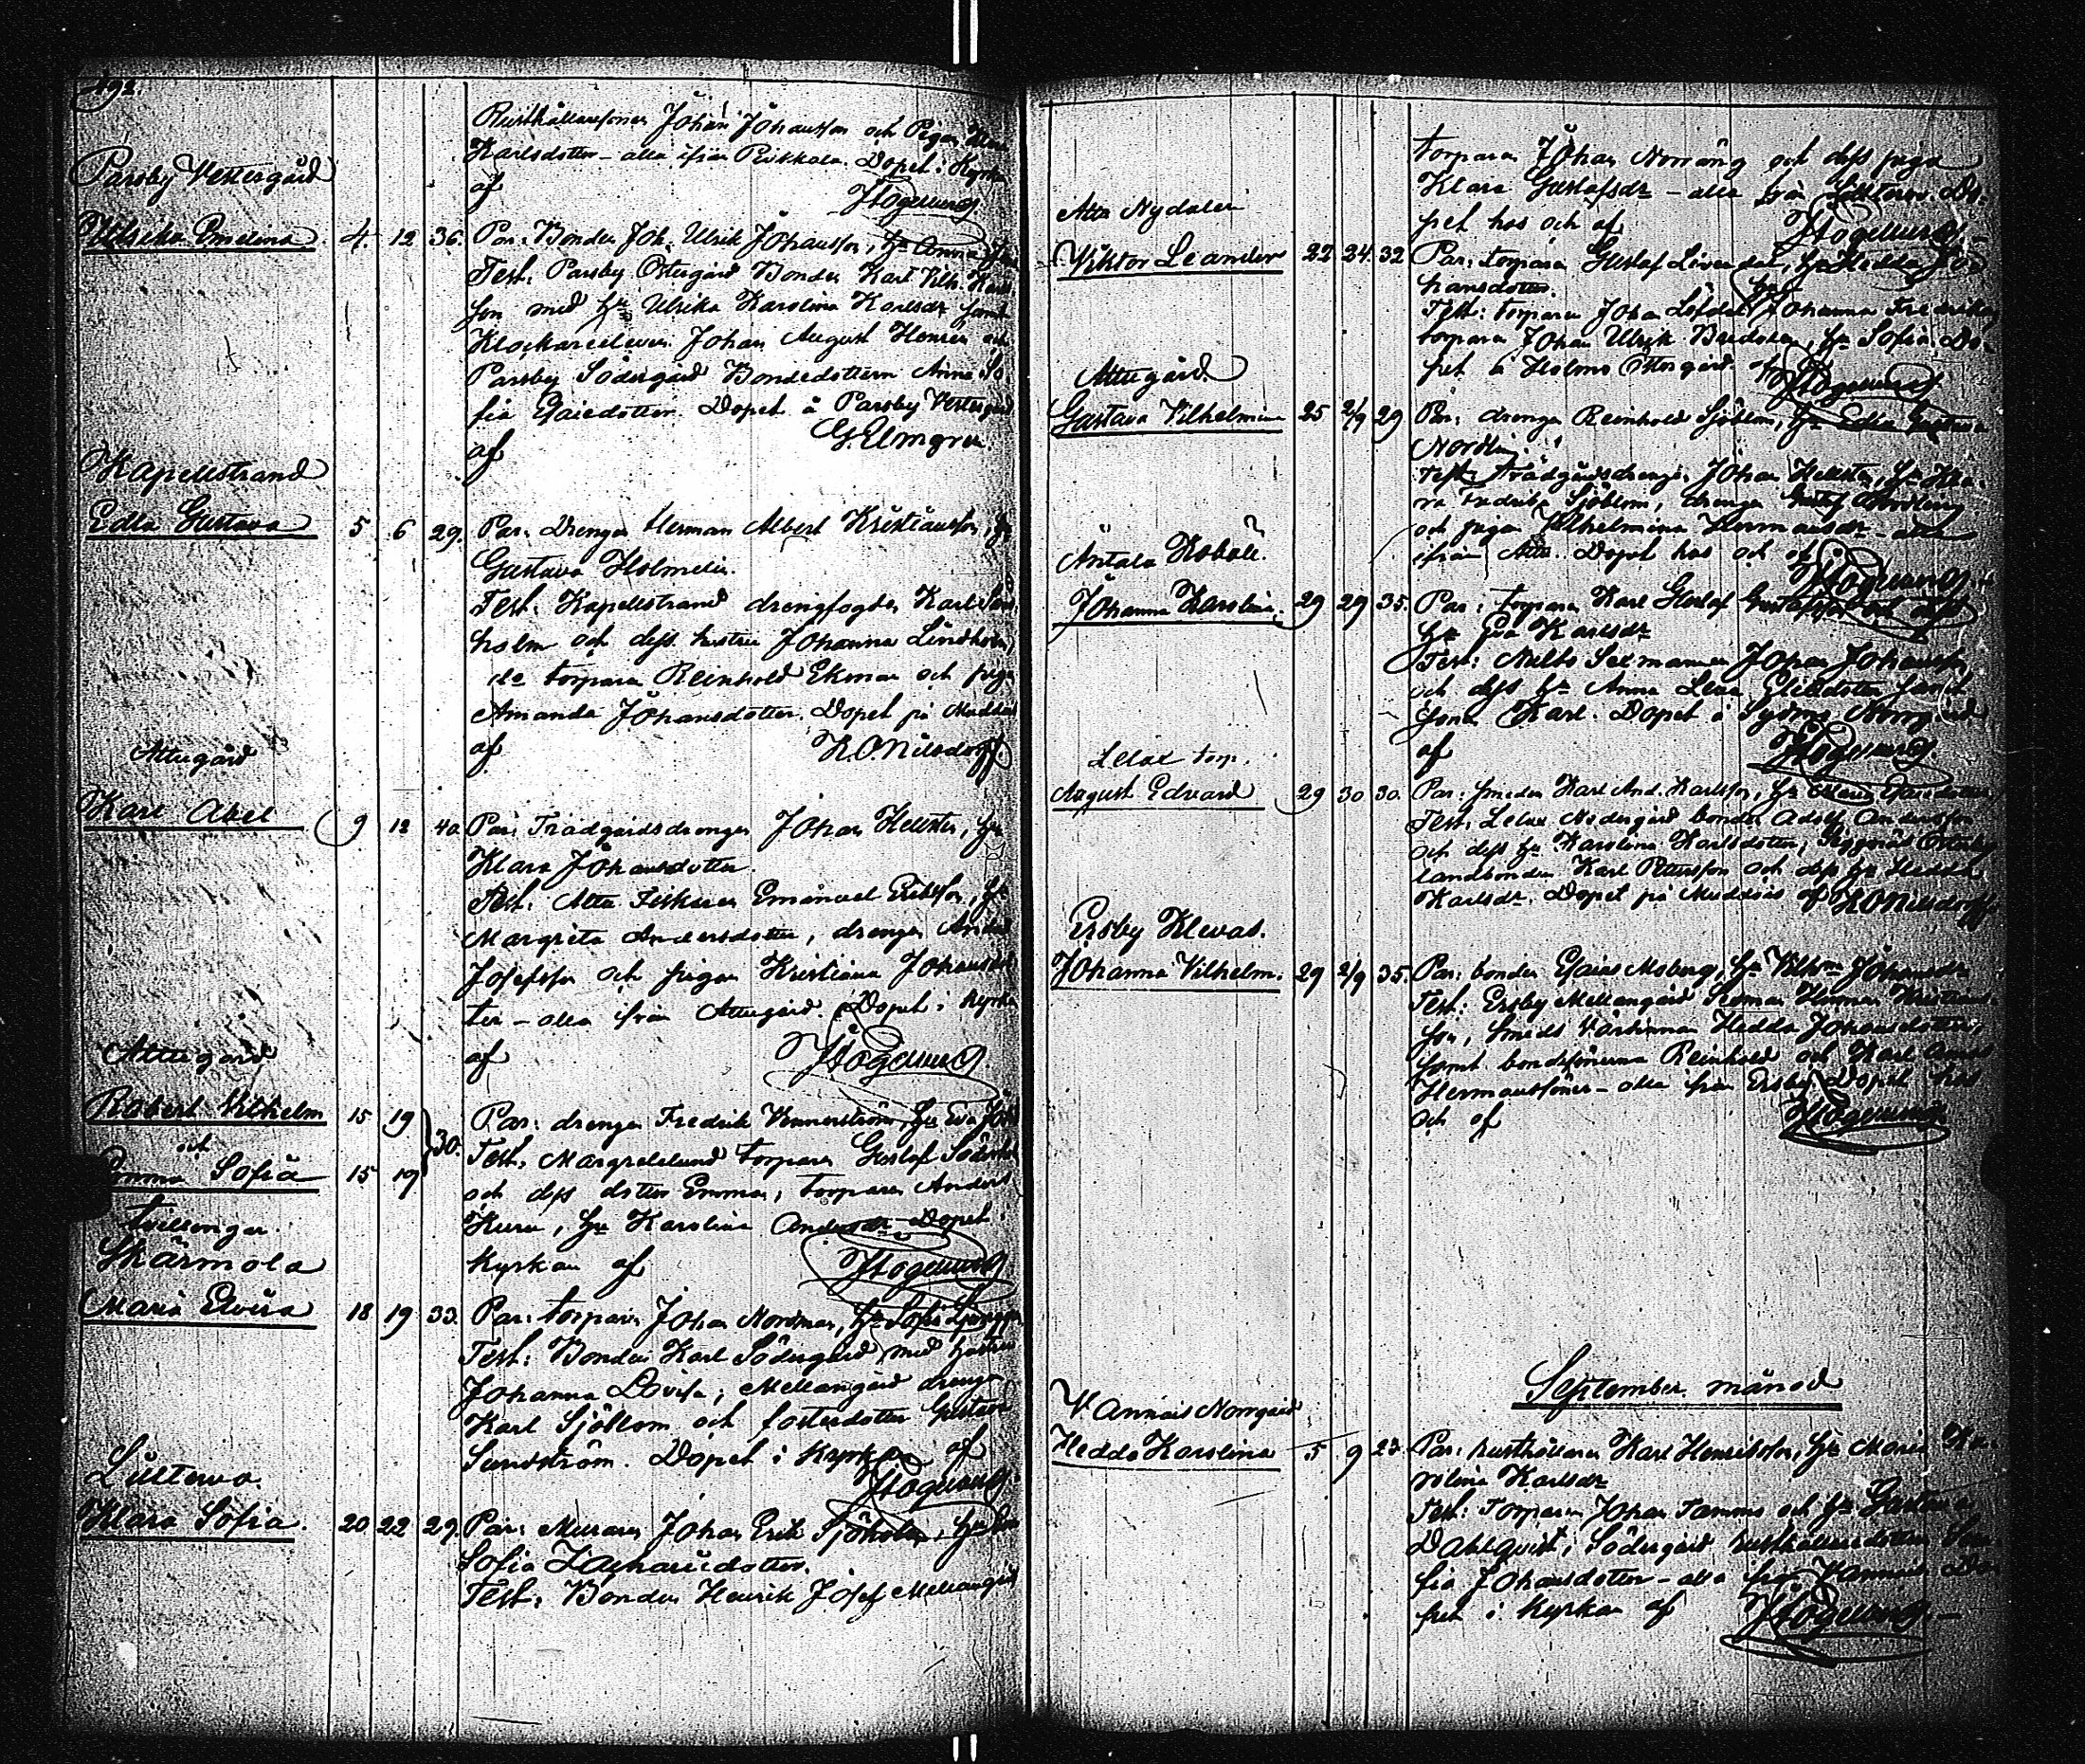 192.
Rusthållaresonen Johan Johansson och Pigan
Karlsdotter – alla ifrån Pirkkala. Dopet i Kyrkan
af Högelund
Parsby Vestergård
Ulrika Emelina 4. 12 36. Par. Bonden Joh. Ulrik Johansson, hu Anna
Test. Parsby Östergård Bonden Karl Vilh. Karls
son med hu Ulrika Karolina Karlsdr samt
Klockareeleven Johan August Henrén och
Parsby Södergård Bondedottern Anna So
fia Esaiedotter. Dopet å Parsby Vestergård
af G. Elmgren.
Kapellstrand
Edla Gustava 5 6 29. Par. Drengen Herman Albert Kristiansson, hu
Gustava Holmelin.
Test. Kapellstrand drengfogden Karl Lind
holm och dess hustru Johanna Lindholm,
do torparen Reinhold Ekman och pigan
Amanda Johansdotter. Dopet på Muddais
af K.O. Nilsdorff
Attugård
Karl Abel 9 12 40. Par. Trädgårdsdrengen Johan Hellsten, hu
Klara Johansdotter.
Test. Attu Fiskaren Emanuel Eriksson, hu
Margreta Andersdotter, drengen Anders
Josefsson och pigan Kristiana Johansdot
ter – alla från Attugård. Dopet i Kyrkan
af Högelund
Attugård
Robert Vilhelm 15 19 } 30. Par: drengen Fredrik Vennerström, hu Eva Joh
och Test. Margretelund torparen Gustaf Söderhol
Emma Sofia 15 19 och dess dotter Emma, torparen Anders
tvillingar Kuru, hu Karolina Andersdr Dopet i
Skärmola
kyrkan af Högelund
Maria Elvira 18 19 33. Par: torparen Johan Nordman, hu Sofia
Test: Bonden Karl Södergård med hustru
Johanna Lovisa, Mellangård drengen
Karl Sjöblom och fosterdotter Gustava
Sundström. Dopet i Kyrkan af
Högelund
Lüttervo.
Klara Sofia. 20 22 29. Par: Muraren Johan Erik Sjöholm, hu Eva
Sofia Zachariedotter.
Test: Bonden Henrik Josef Mellangård
torparen Johan Norräng och dess piga
Klara Gustafsdr – alla från Lüttervo. Do-
pet hos och af Högelund
Attu Nydalen
Viktor Leander 22 24. 32 Par: torparen Gustaf Lövendal, hu Hedda Jo
hansdotter.
Test: torparen Johan Löfdal hu Johanna Fredrika,
torparen Johan Ulrik Bredalen, hu Sofia. Do-
pet å Holmo Östergård af Högelund
Attugård.
Gustava Vilhelmina 25 2/9 29 Par: drengen Reinhold Sjöblom, hu Edla Gustava
Nordling.
Test: Trädgårdsdrengen Johan Hellsten, hu Kla-
ra Fredrika Sjöblom, drengen Gustaf Nordling
och pigan Vilhelmina Hermansdr – alla
ifrån Attu. Dopet hos och af
Högelund
Antala Koböle.
Johanna Karolina. 29 29 35. Par: torparen Karl Gustaf Gustafsson och dess
hu Eva Karlsdr
Test: Mulbo Sexmannen Johan Johansson
och dess hu Anna Lena Eliedotter samt
sonen Karl. Dopet å Sydmo Norrgård
af Högelund
Lelax torp.
August Edvard 29 30 30. Par: smeden Karl And. Karlsson, hu Maria Esaiedotter,
Test. Lelax Nedergård bonden Adolf Andersson
och dess hu Karolina Karlsdotter, Seggnäs Österby
landbonden Karl Petersson och dess hu Hedda
Karlsdr. Dopet på Muddais af K O Nilsdorff
Ersby Klevas.
Johanna Vilhelm. 29 2/9 35. Par: bonden Esaias Moberg, hu Vilhna Johansdr
Test: Ersby Mellangård Sexman Herman Kristians-
son, smeds värdinnan Hedda Johansdotter,
samt bondesönerna Reinhold och Karl
Hermanssöner – alla från Ersby Dopet hos
och af Högelund
September månad
V. Annais Norrgård
Hedda Karolina 5 9 23. Par: rusthållaren Karl Henriksson, hu Maria Ka-
rolina Karlsdr
Test: Torparen Johan Tamms och hu Gustava
Dahlqvist, Södergård rusthållaredottern So
fia Johansdotter – alla från V. Annais. Do
pet i Kyrkan af Högelund